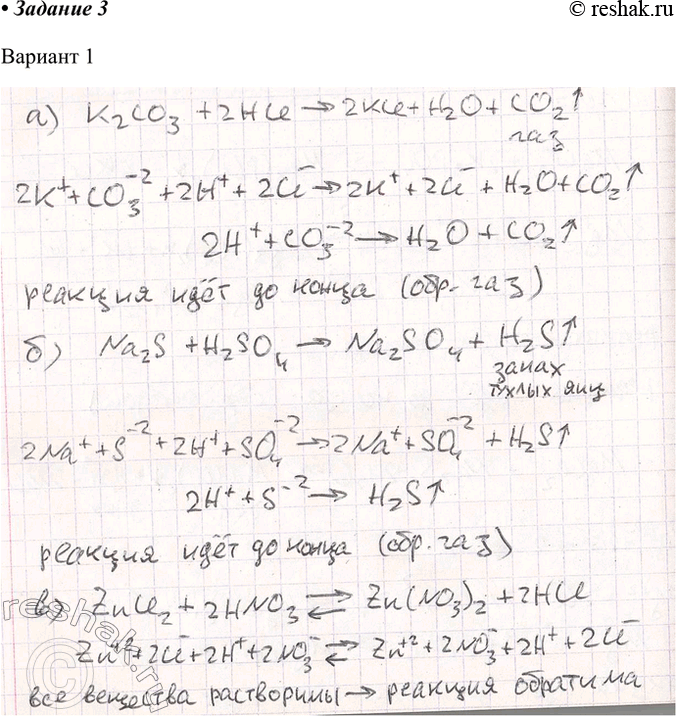 • Задание 3
© reshak.ru
Вариант 1
а) K₂CO₃ + 2HCl → 2KCl + H₂O + CO₂↑
газ
2K⁺ + CO₃⁻² + 2H⁺ + 2Cl⁻ → 2K⁺ + 2Cl⁻ + H₂O + CO₂↑
2H⁺ + CO₃⁻² → H₂O + CO₂↑
реакция идёт до конца (обр. газ)
б) Na₂S + H₂SO₄ → Na₂SO₄ + H₂S↑
запах
тухлых яиц
2Na⁺ + S⁻² + 2H⁺ + SO₄⁻² → 2Na⁺ + SO₄⁻² + H₂S↑
2H⁺ + S⁻² → H₂S↑
реакция идёт до конца (обр. газ)
в) ZnCl₂ + 2HNO₃ ⇄ Zn(NO₃)₂ + 2HCl
Zn⁺² + 2Cl⁻ + 2H⁺ + 2NO₃⁻ ⇄ Zn⁺² + 2NO₃⁻ + 2H⁺ + 2Cl⁻
все вещества растворимы → реакция обратима
reshak.ru